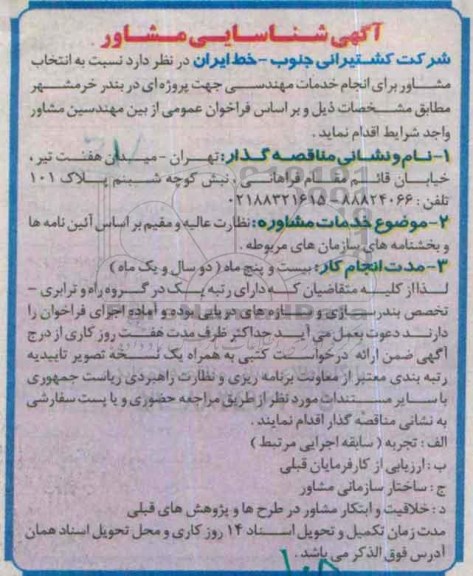 آگهی شناسایی مشاور
شرکت کشتیرانی جنوب - خط ایران در نظر دارد نسبت به انتخاب
مشاور برای انجام خدمات مهندسی جهت پروژه ای در بندر خرمشهر
مطابق مشخصات ذیل و بر اساس فراخوان عمومی از بین مهندسین مشاور
واجد شرایط اقدام نماید .
۱- نام و نشانی مناقصه گذار : تهران - میدان هفت تیر ،
خیابان قائم مقام فراهانی ، نبش کوچه شبنم پلاک ۱۰۱
تلفن : ۸۸۸۲۴۰۶۶ - ۰۲۱۸۸۳۲۱۶۱۵
۲- موضوع خدمات مشاوره : نظارت عالیه و مقیم بر اساس آئین نامه ها
و بخشنامه های سازمان های مربوطه .
۳- مدت انجام کار : بیست و پنج ماه ( دو سال و یک ماه )
لذا از کلیه متقاضیان که دارای رتبه یک در گروه راه و ترابری -
تخصص بندرسازی و سازه های دریایی بوده و آماده اجرای فراخوان را
دارند دعوت بعمل می آید حداکثر ظرف مدت هفت روز کاری از درج
آگهی ضمن ارائه درخواست کتبی به همراه یک نسخه تصویر تاییدیه
رتبه بندی معتبر از معاونت برنامه ریزی و نظارت راهبردی ریاست جمهوری
با سایر مستندات مورد نظر از طریق مراجعه حضوری و یا پست سفارشی
به نشانی مناقصه گذار اقدام نمایند .
الف : تجربه ( سابقه اجرایی مرتبط )
ب : ارزیابی از کارفرمایان قبلی
ج : ساختار سازمانی مشاور
د : خلاقیت و ابتکار مشاور در طرح ها و پژوهش های قبلی
مدت زمان تکمیل و تحویل اسناد ۱۴ روز کاری و محل تحویل اسناد همان
آدرس فوق الذکر می باشد .